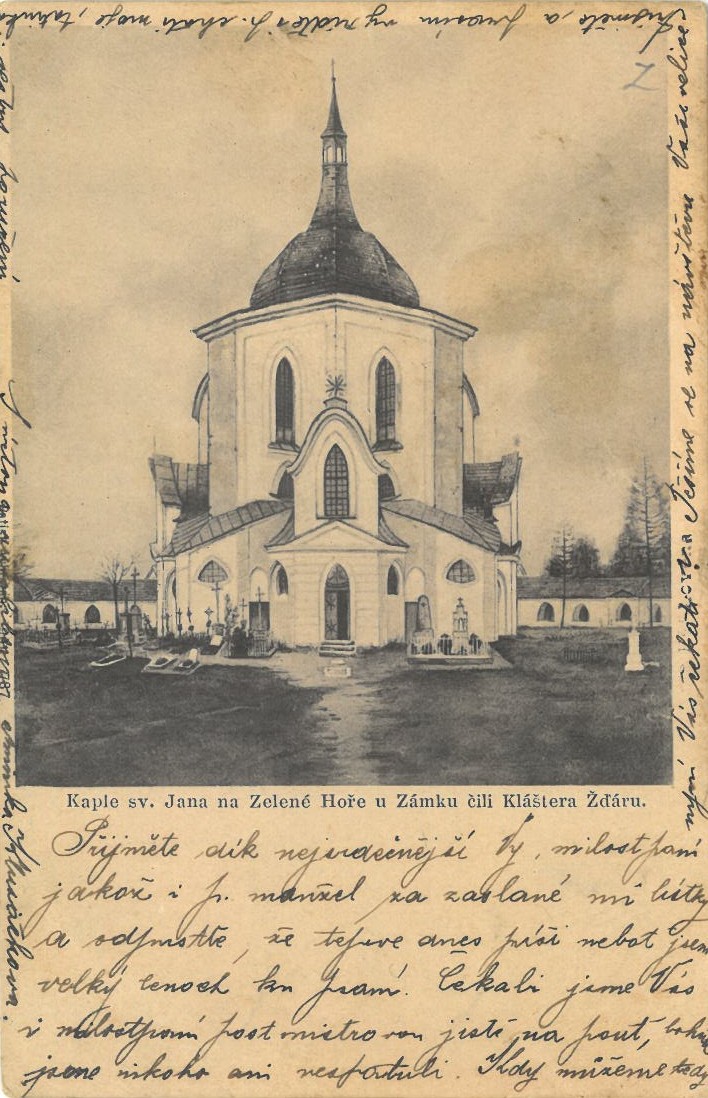 Kaple sv. Jana na Zelené Hoře u Zámku čili Kláštera Žďáru.
Přijměte dík nejsrdečnější Vy, milostpaní
jakož i p. manžel za zaslané mi lístky
a odpusťte, že teprve dnes píši neboť jsem
velký lenoch ku psaní. Čekali jsme Vás
i milostpaní postmistrovou jistě na pouť, bohužel
jsme nikoho ani nespatřili. Kdy můžeme tedy
nyní Vás čekati? Těšíme se na návštěvu Vaši velice
Přijměte, a prosím vyřiďte i p. choti moje,